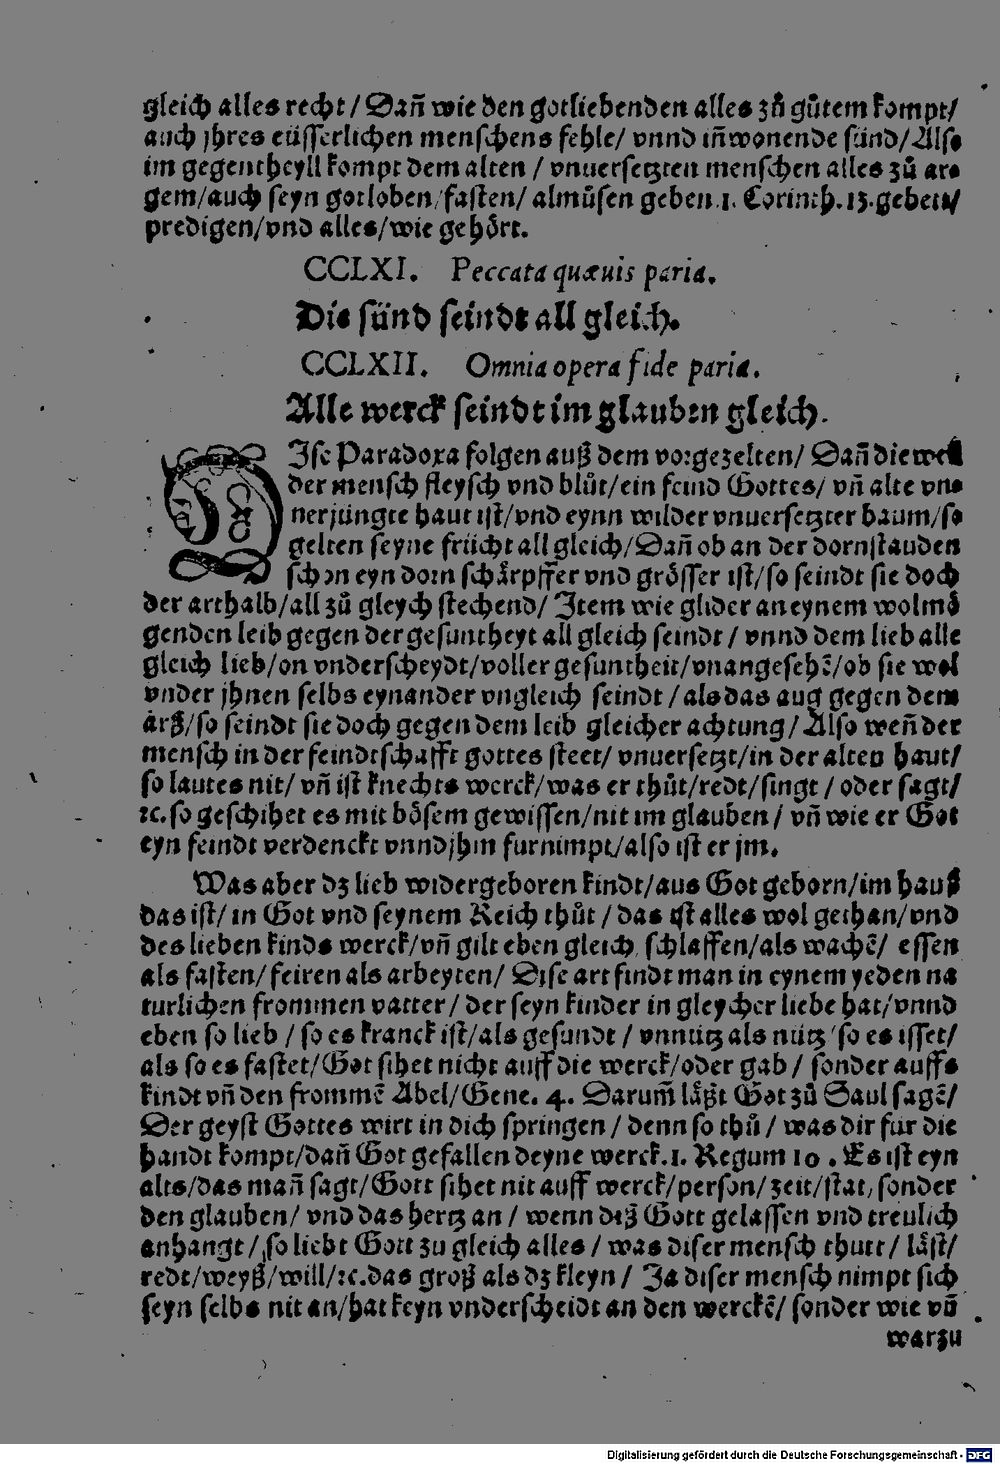 gleich alles recht / Dañ wie den gotliebenden alles zů gůtem kompt/
auch jhres eüsserlichen menschens fehle/ vnnd iñwonende sünd/ Also
im gegentheyll kompt dem alten / vnuersetzten menschen alles zů ar⸗
gem/auch seyn gotloben/fasten/ almůsen geben.1. Corinth.13.gebett/
predigen/vnd alles/wie gehört.
CCLXI. Peccata quæuis paria.
Die sünd seindt all gleich.
CCLXII. Omnia opera fide paria.
Alle werck seindt im glauben gleich.
DIse Paradoxa folgen auß dem vorgezelten/ Dañ die weil
der mensch fleysch vnd blůt/ein feind Gottes/ vñ alte vn⸗
nerjüngte haut ist/vnd eynn wilder vnuersetzter baum/so
gelten seyne frücht all gleich/Dañ ob an der dornstauden
schon eyn dorn schärpffer vnd grösser ist/so seindt sie doch
der arthalb/all zů gleych stechend/ Item wie glider an eynem wolmö
genden leib gegen der gesuntheyt all gleich seindt / vnnd dem lieb alle
gleich lieb/on vnderscheydt/voller gesuntheit/vnangesehē/ob sie wol
vnder jhnen selbs eynander vngleich seindt / als das aug gegen dem
arß/so seindt sie doch gegen dem leib gleicher achtung/ Also weñ der
mensch in der feindtschafft gottes steet/ vnuersetzt/in der alten haut/
so lautes nit/ vñ ist knechts werck/was er thůt/redt/singt / oder sagt/
ꝛc.so geschihet es mit bösem gewissen/nit im glauben / vñ wie er Got
eyn feindt verdenckt vnnd jhm furnimpt/also ist er jm.
Was aber dz lieb widergeboren kindt/aus Got geborn/im hauß
das ist/ in Got vnd seynem Reich thůt / das ist alles wol gethan/vnd
des lieben kinds werck/vñ gilt eben gleich schlaffen/als wachē/ essen
als fasten/ feiren als arbeyten/ Dise art findt man in eynem yeden na
turlichen frommen vatter/ der seyn kinder in gleycher liebe hat/vnnd
eben so lieb / so es kranck ist/als gesundt / vnnütz als nütz/so es isset/
als so es fastet/Got sihet nicht auff die werck/oder gab / sonder auffs
kindt vñ den frommē Abel/Gene. 4. Darum̃ läßt Got zů Saul sagē/
Der geyst Gottes wirt in dich springen / denn so thů / was dir für die
handt kompt/dañ Got gefallen deyne werck.1. Regum 10 . Es ist eyn
alts/das mañ sagt/Gott sihet nit auff werck/person/zeit/stat, sonder
den glauben/ vnd das hertz an / wenn diß Gott gelassen vnd treulich
anhangt / so liebt Gott zu gleich alles / was diser mensch thutt/ läst/
redt/weyß/will/ꝛc.das groß als dz kleyn / Ja diser mensch nimpt sich
seyn selbs nit an/hat keyn vnderscheidt an den werckē/ sonder wie vñ
warzu
Digitalisierung gefördert durch die Deutsche Forschungsgemeinschaft - DFG